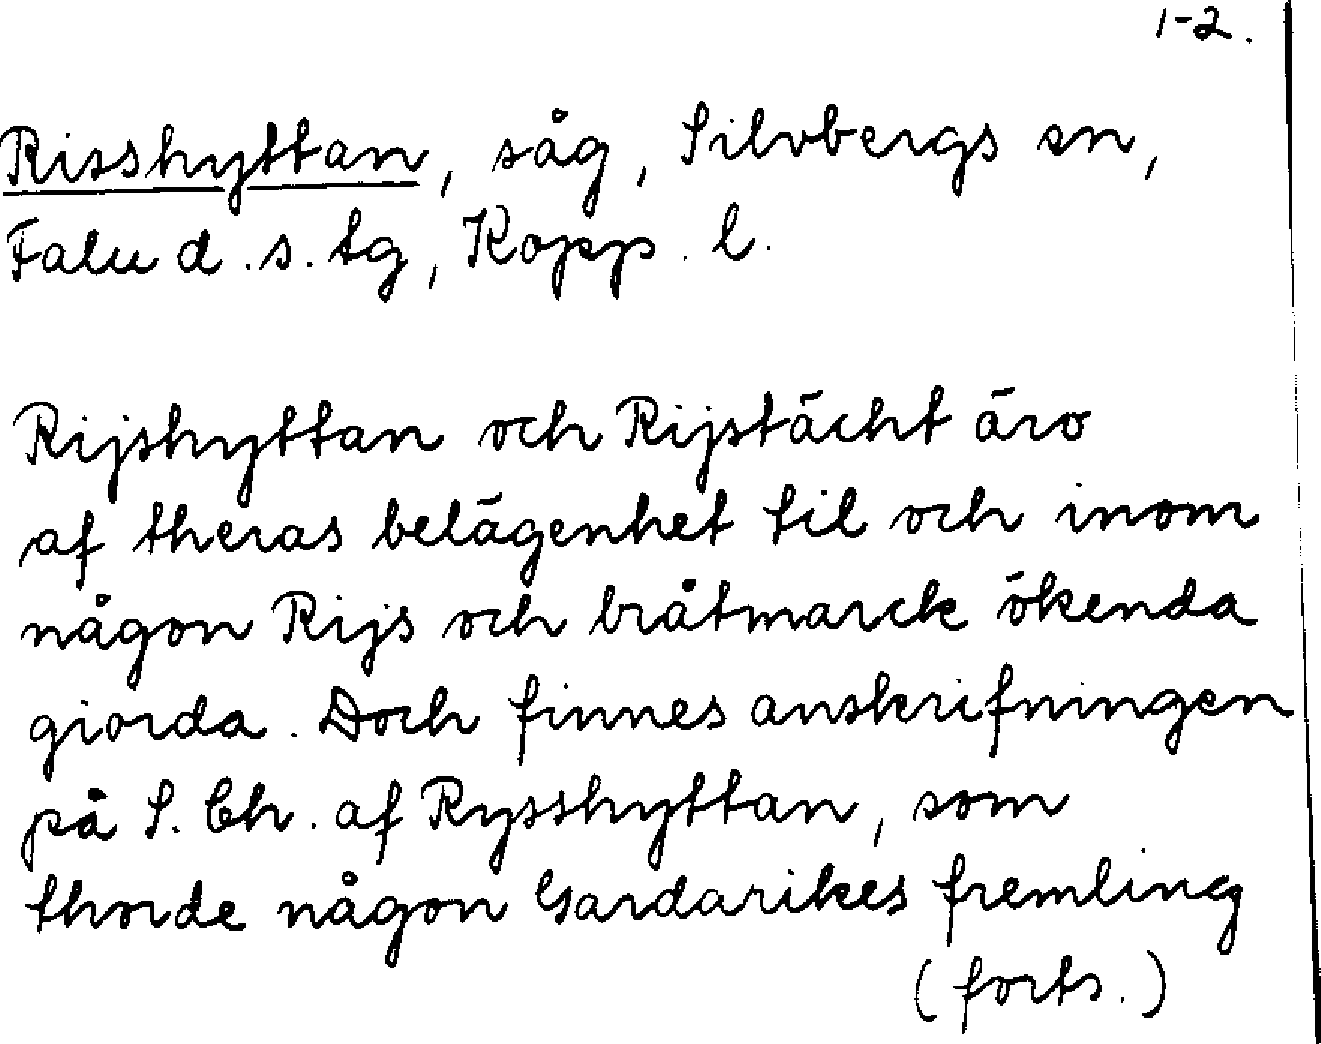 1-2.
Risshyttan, såg, Silvbergs sn,
Falu d.s. tg, Kopp. l.
Rijshyttan och Rijstächt äro
af theras belägenhet til och inom
någon Rijs och bråtmarck ökenda
giorda. Doch finnes anskrifningen
på S. Ch. af Rysshyttan, som
thorde någon Gardarikes fremling
(forts.)